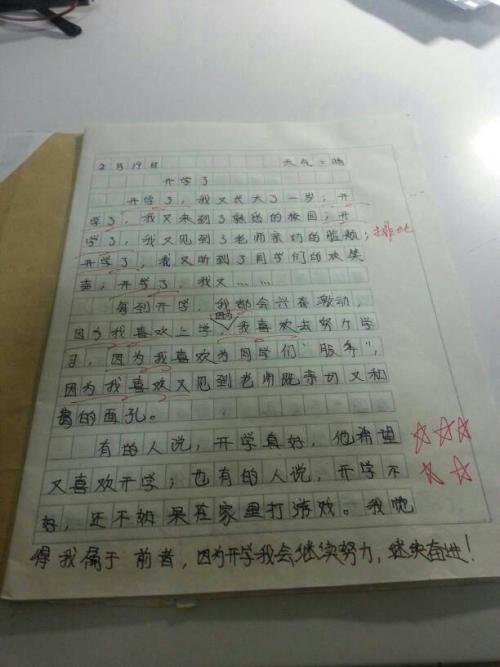 2月19日 天气:晴
开学了
开学了,我又长大了一岁;开
学了,我又来到了熟悉的校园;开
学了,我又见到了老师亲切的脸颊;排比
开学了,我又听到了同学们的欢笑
声;开学了,我又……
每到开学,我都会兴奋激动,
因为我喜欢上学,因为我喜欢去努力学
习,因为我喜欢为同学们“服务”,
因为我喜欢又见到老师既亲切又和
蔼的面孔。
有的人说,开学真好,他希望
又喜欢开学;也有的人说,开学不
好,还不如呆在家里打游戏。我觉
得我属于前者,因为开学我会继续努力,继续奋进!